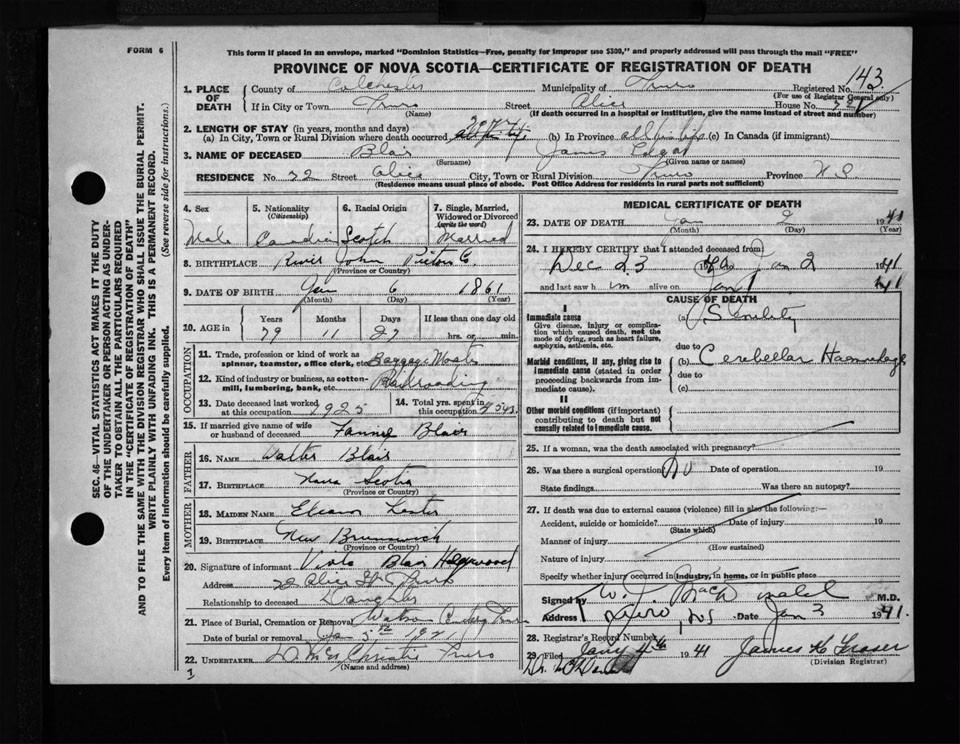 FORM 6
This form if placed in an envelope, marked "Dominion Statistics—Free, penalty for improper use $300," and properly addressed will pass through the mail "FREE"
PROVINCE OF NOVA SCOTIA—CERTIFICATE OF REGISTRATION OF DEATH
Registered No. 143
(For use of Registrar General only)
1. PLACE OF DEATH
County of Colchester Municipality of Truro
If in City or Town Truro Street Alice House No.
(Name) (If death occurred in a hospital or institution, give the name instead of street and number)
2. LENGTH OF STAY (in years, months and days)
(a) In City, Town or Rural Division where death occurred (b) In Province all his life (c) In Canada (if immigrant)
3. NAME OF DECEASED Blair James Edgar
(Surname) (Given name or names)
RESIDENCE No. 32 Street Alice City, Town or Rural Division Truro Province N.S.
(Residence means usual place of abode. Post Office Address for residents in rural parts not sufficient)
4. Sex
Male
5. Nationality (Citizenship)
Canadian
6. Racial Origin
Scotch
7. Single, Married, Widowed or Divorced (write the word)
Married
8. BIRTHPLACE River John Pictou Co
(Province or Country)
9. DATE OF BIRTH Jan 6 1861
(Month) (Day) (Year)
10. AGE in
Years Months Days If less than one day old
79 11 27 hrs. or min.
OCCUPATION
11. Trade, profession or kind of work as spinner, teamster, office clerk, etc. Baggage Master
12. Kind of industry or business, as cotton-mill, lumbering, bank, etc. Railroading
13. Date deceased last worked at this occupation 1925
14. Total yrs. spent in this occupation
15. If married give name of wife or husband of deceased Fannie Blair
FATHER
16. NAME Walter Blair
17. BIRTHPLACE Nova Scotia
(Province or Country)
MOTHER
18. MAIDEN NAME Eleanor
19. BIRTHPLACE New Brunswick
(Province or Country)
20. Signature of informant Viola Blair
Address Alice St Truro
Relationship to deceased Daughter
21. Place of Burial, Cremation or Removal Watson Truro
Date of burial or removal Jan 5th 1941
22. UNDERTAKER Christie Truro
(Name and address)
MEDICAL CERTIFICATE OF DEATH
23. DATE OF DEATH Jan 2 1941
(Month) (Day) (Year)
24. I HEREBY CERTIFY that I attended deceased from
Dec 23 Jan 2 1941
and last saw him alive on Jan 1 1941
CAUSE OF DEATH
I
Immediate cause
Give disease, injury or complication which caused death, not the mode of dying, such as heart failure, asphyxia, asthenia, etc.
(a) Senility
due to
Morbid conditions, if any, giving rise to immediate cause (stated in order proceeding backwards from immediate cause).
(b) Cerebellar Haemorrhage
due to
(c)
II
Other morbid conditions (if important) contributing to death but not causally related to immediate cause.
25. If a woman, was the death associated with pregnancy?
26. Was there a surgical operation? No Date of operation 19
State findings Was there an autopsy?
27. If death was due to external causes (violence) fill in also the following:—
Accident, suicide or homicide? Date of injury 19
(State which)
Manner of injury
(How sustained)
Nature of injury
Specify whether injury occurred in industry, in home, or in public place
Signed by M.D.
Address Truro, NS Date Jan 3 1941.
28. Registrar's Record Number
29. Filed Jany 4th 1941 James H Fraser
(Division Registrar)
SEC. 46—VITAL STATISTICS ACT MAKES IT THE DUTY
OF THE UNDERTAKER OR PERSON ACTING AS UNDERTAKER TO OBTAIN ALL THE PARTICULARS REQUIRED
IN THE "CERTIFICATE OF REGISTRATION OF DEATH"
AND TO FILE THE SAME WITH THE DIVISION REGISTRAR WHO SHALL ISSUE THE BURIAL PERMIT.
WRITE PLAINLY WITH UNFADING INK. THIS IS A PERMANENT RECORD.
Every item of information should be carefully supplied. (See reverse side for instructions.)